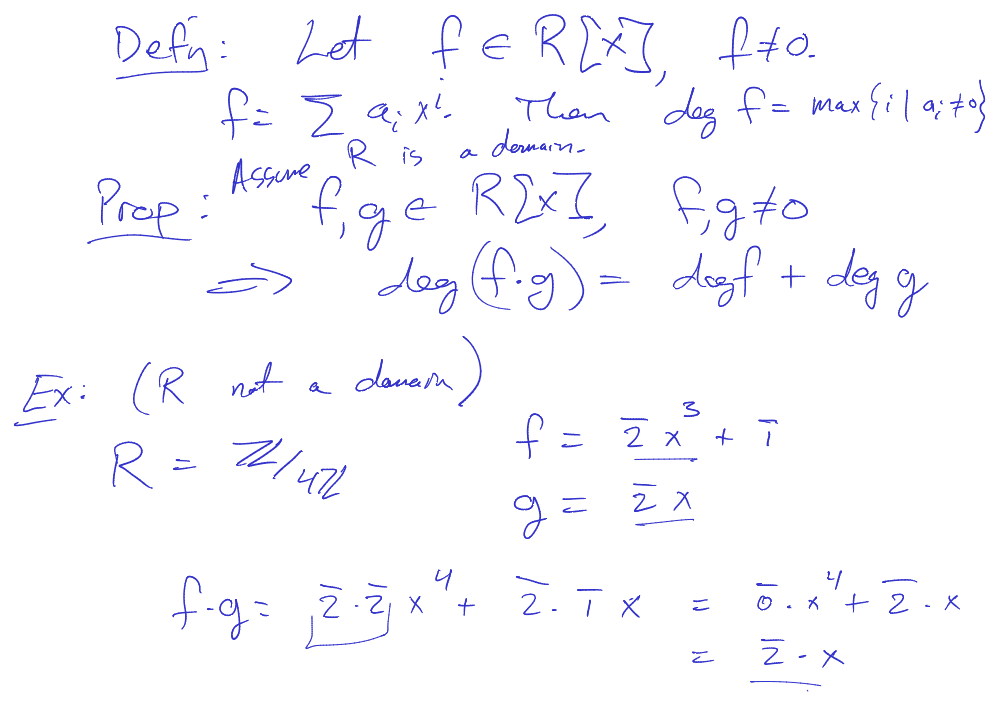 Defn: Let f ∈ R[x], f≠0.
f = ∑ aᵢ xⁱ. Then deg f = max{i | aᵢ≠0}
Assume R is a domain.
Prop: f,g ∈ R[x], f,g≠0
⟹ deg(f·g) = deg f + deg g
Ex: (R not a domain)
R = ℤ/4ℤ
f = 2̄ x³ + 1̄
g = 2̄ x
f·g = 2̄·2̄ x⁴ + 2̄·1̄ x = 0̄·x⁴ + 2̄·x
= 2̄·x